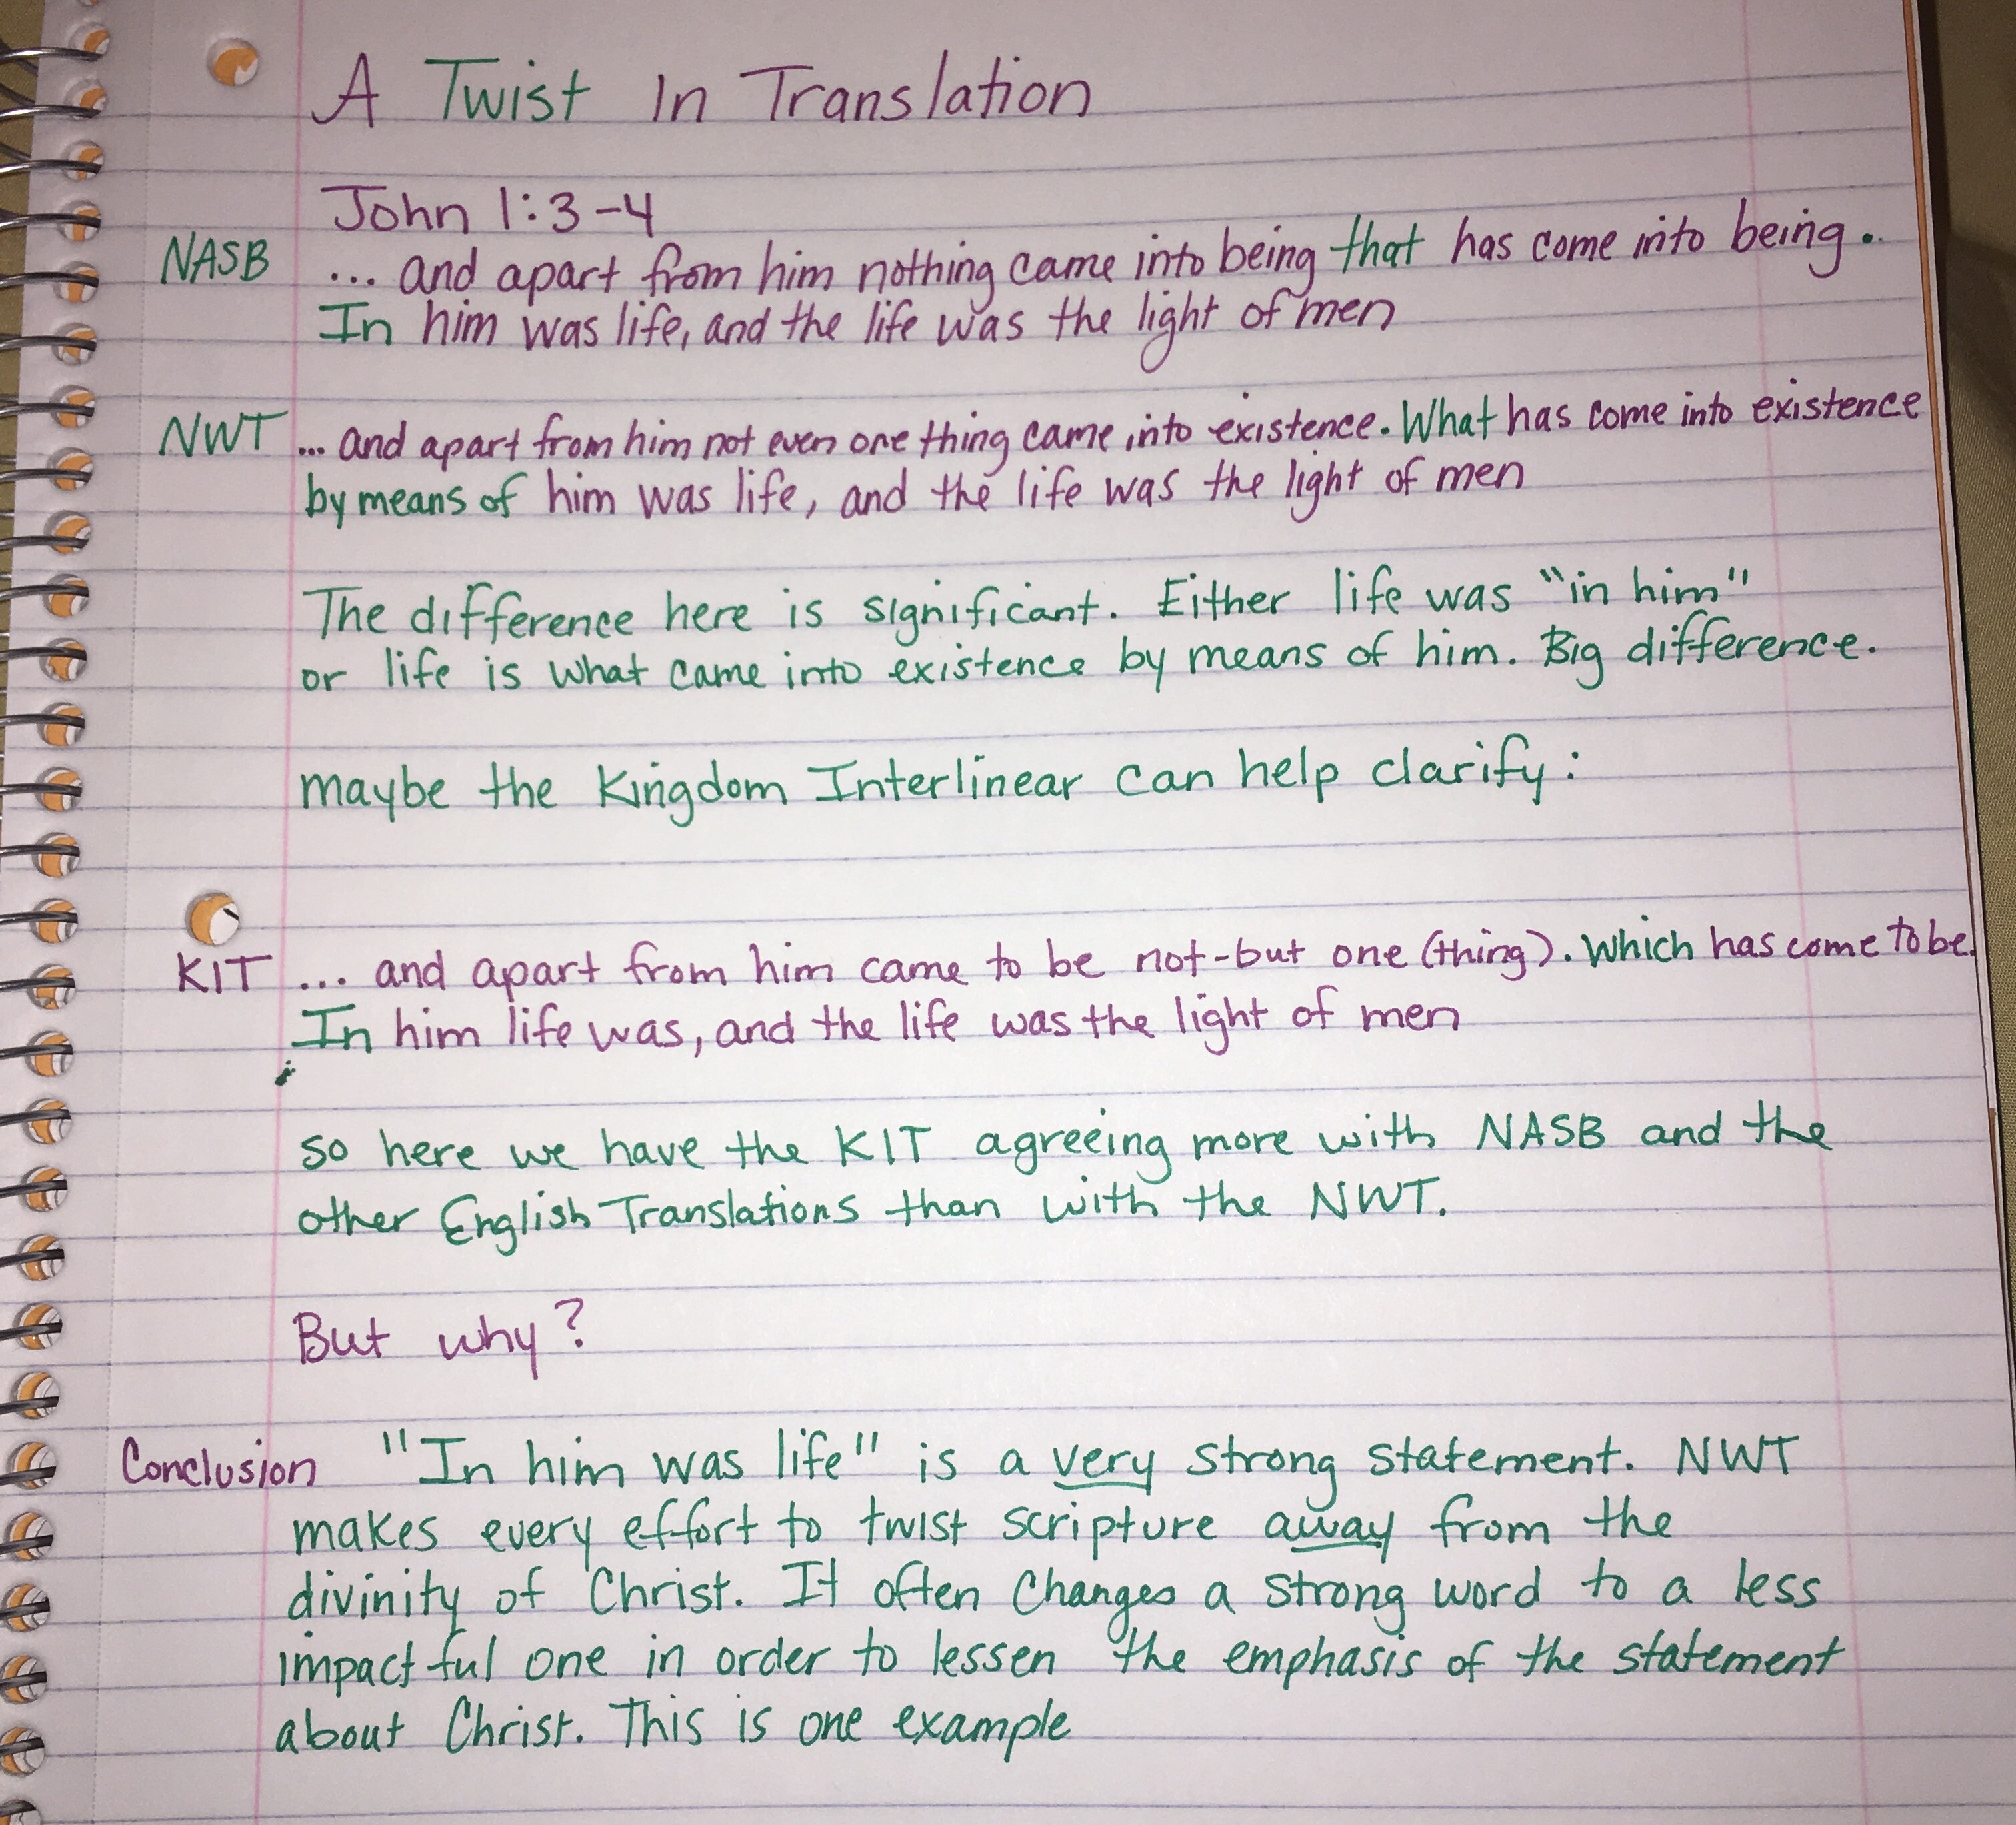 A Twist In Translation
John 1:3-4
NASB ... and apart from him nothing came into being that has come into being..
In him was life, and the life was the light of men
NWT ... and apart from him not even one thing came into existence. What has come into existence
by means of him was life, and the life was the light of men
The difference here is significant. Either life was "in him"
or life is what came into existence by means of him. Big difference.
maybe the Kingdom Interlinear can help clarify:
KIT ... and apart from him came to be not-but one (thing). Which has come to be.
In him life was, and the life was the light of men
so here we have the KIT agreeing more with NASB and the
other English Translations than with the NWT.
But why?
Conclusion "In him was life" is a very strong statement. NWT
makes every effort to twist scripture away from the
divinity of Christ. It often changes a strong word to a less
impactful one in order to lessen the emphasis of the statement
about Christ. This is one example